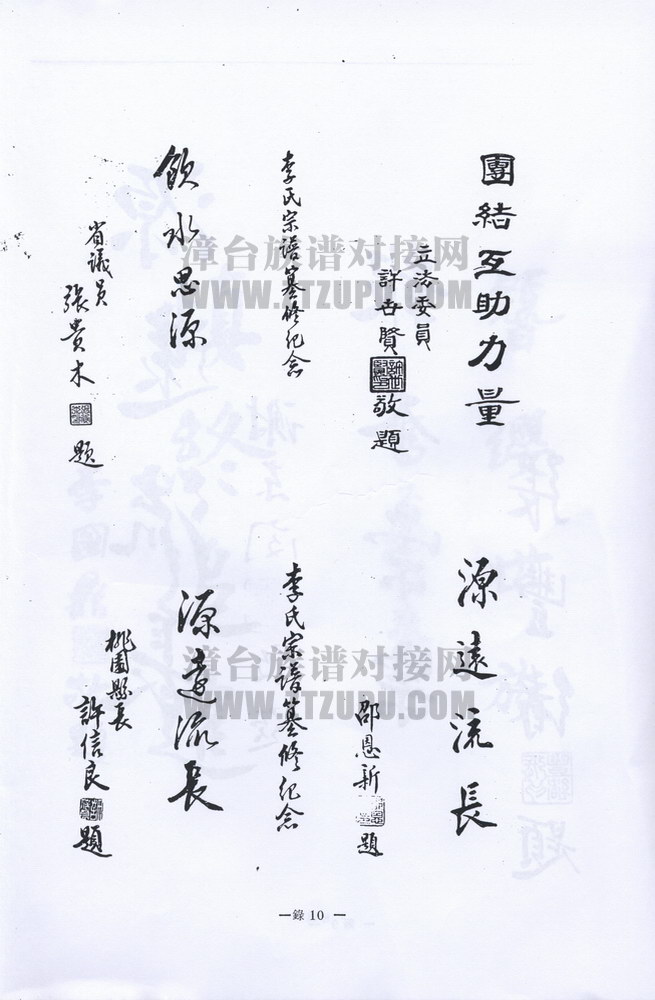 團結互助力量
立法委員
許世賢 敬題
李氏宗譜纂修紀念
飲水思源
省議員
張貴木 題
源遠流長
邵恩新 題
李氏宗譜纂修紀念
源遠流長
桃園縣長
許信良 題
漳台族谱对接网
WWW.ZTZUPU.COM
漳台族谱对接网
WWW.ZTZUPU.COM
—錄 10 —